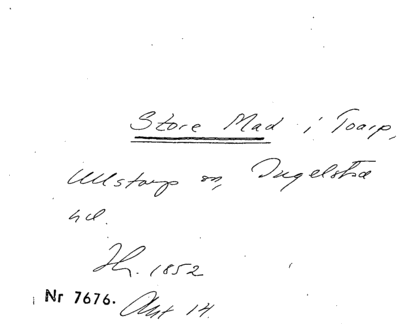 Store Mad i Toarp,
Ullstorp sn, Ingelstad
hd.
Th. 1852
Nr 7676. Akt 14.